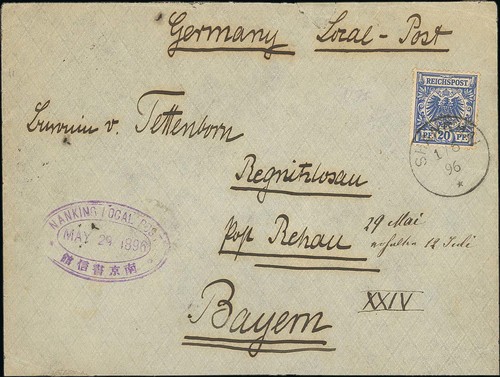 Germany Local-Post
REICHSPOST
PF. 20 PF.
v. Tettenborn
1 6
96
Regnitzlosau
NANKING LOCAL POST
MAY 29 1896
南京書信館
post Rehau
29 Mai
erhalten 12 Juli
XXIV
Bayern